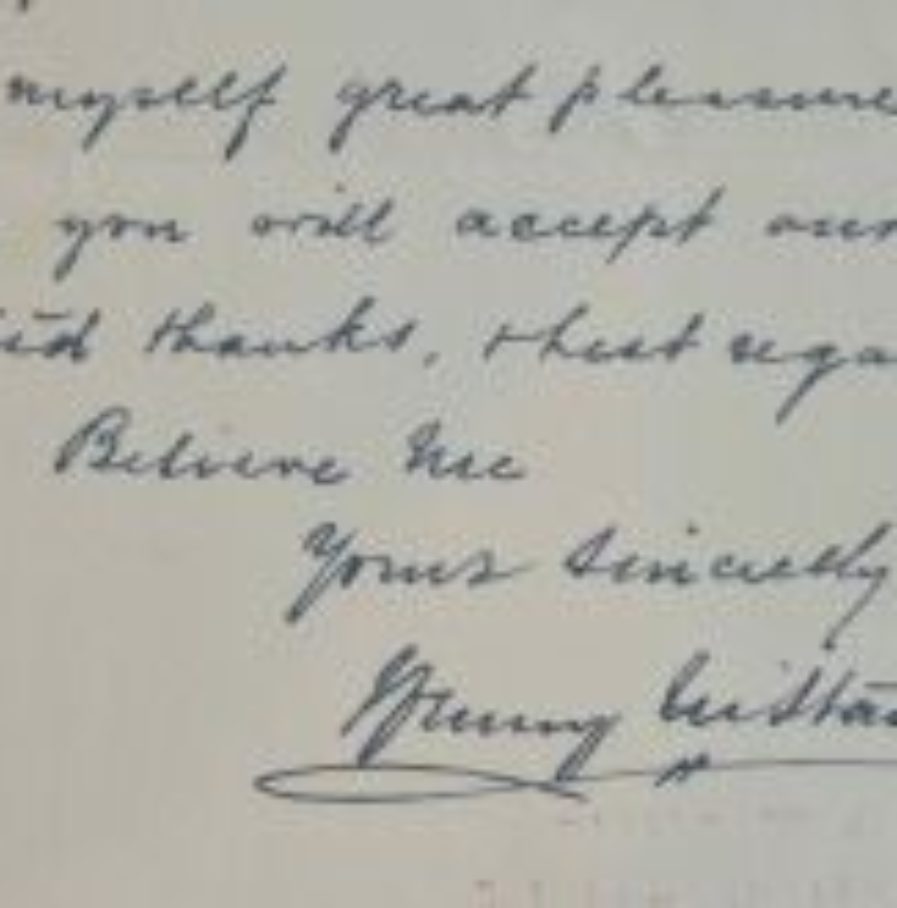 myself great pleasure
you will accept our
thanks, + best rega
Believe Me
Yours Sincerely